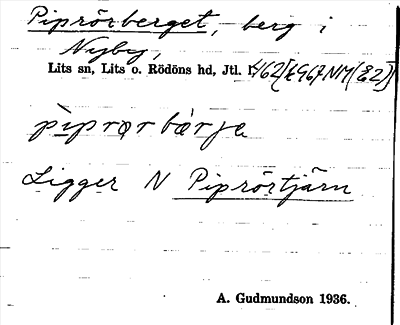 Piprörberget, berg i
Nyby,
Lits sn, Lits o. Rödöns hd, Jtl. l.
pìprørbæ̀rje
Ligger N Piprörtjärn
A. Gudmundson 1936.